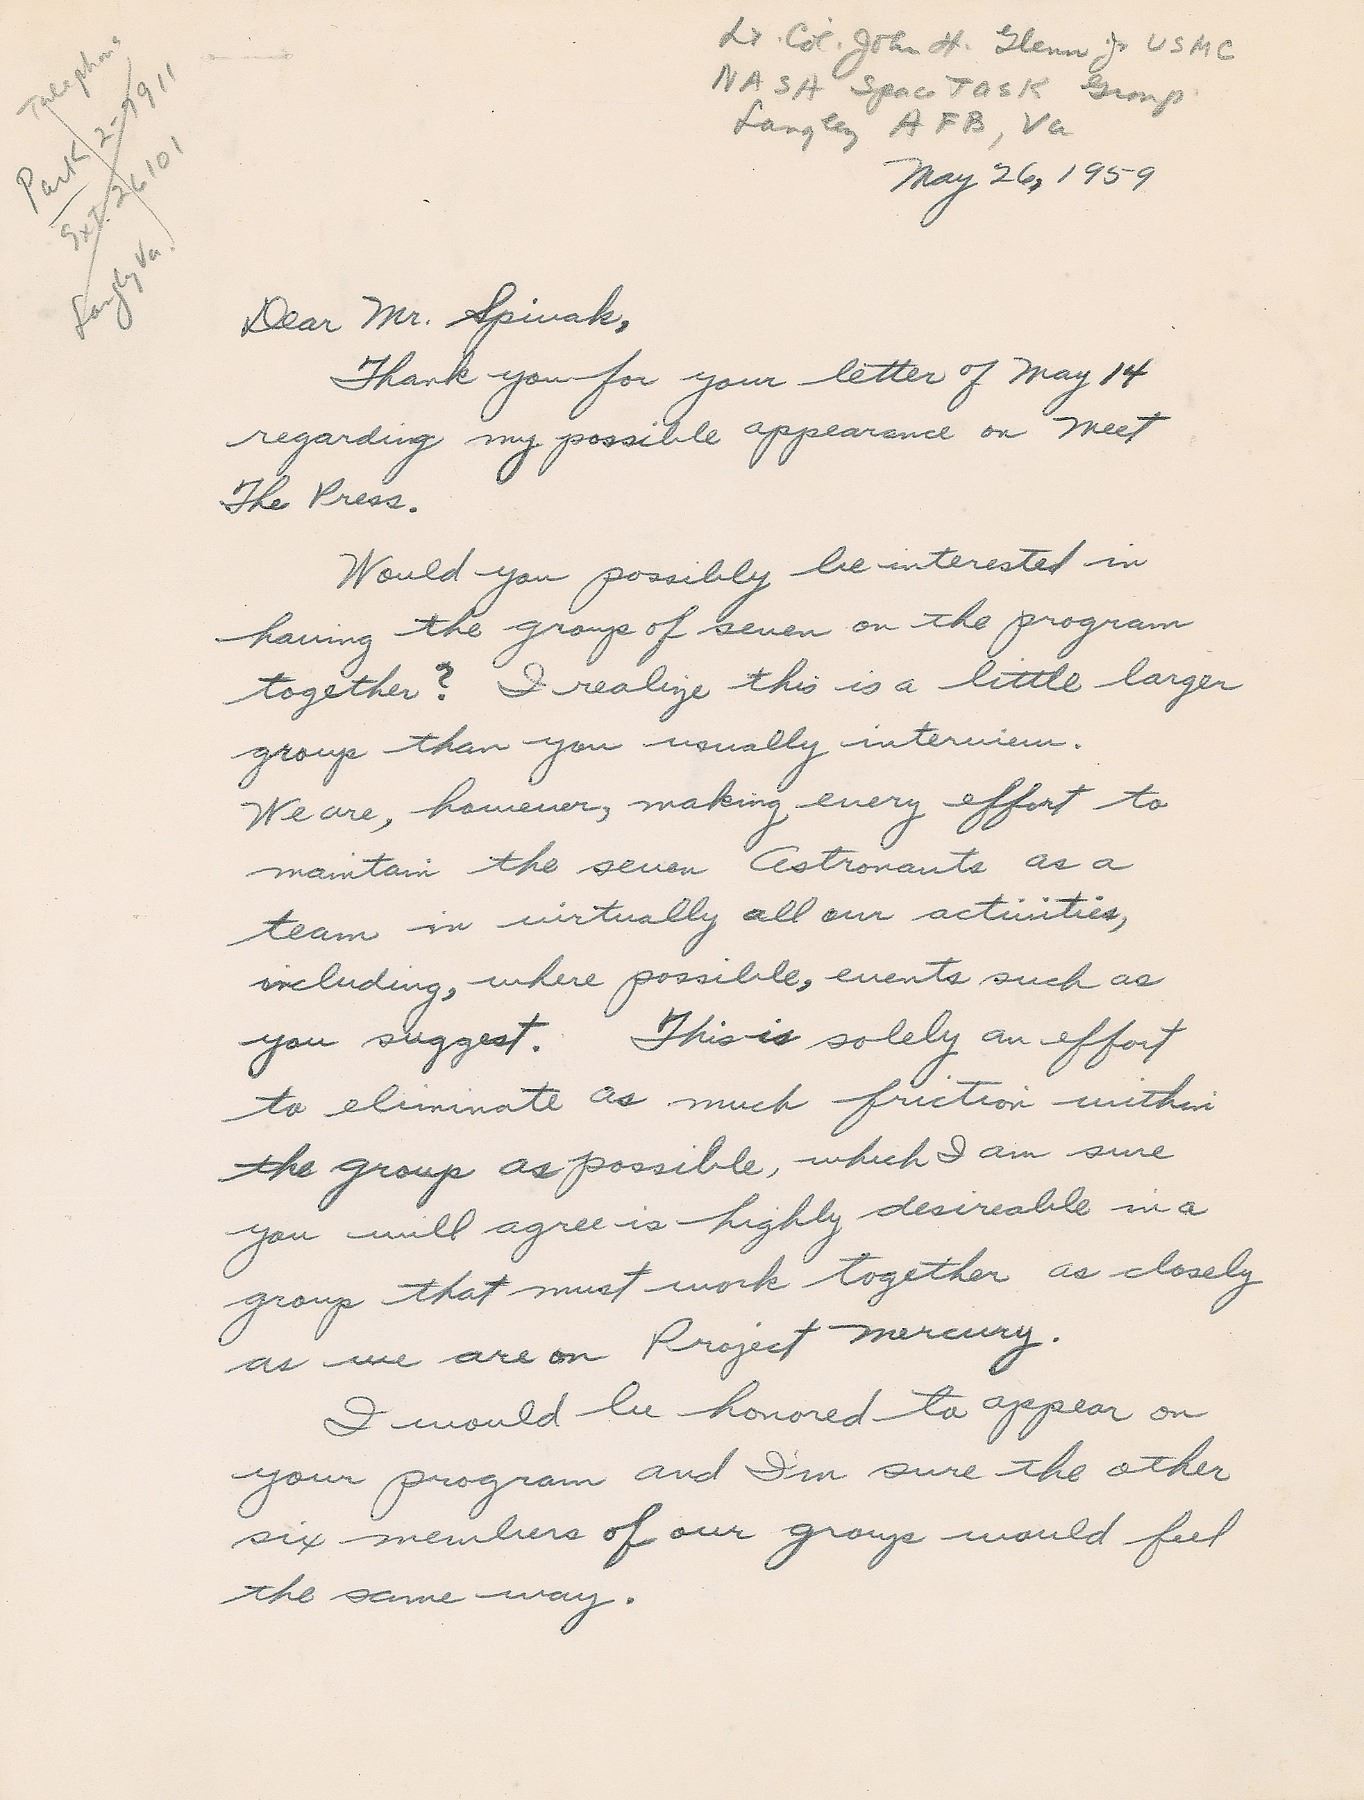 Telephone
Park 2-7911
Ext. 26101
Langley Va.
Lt. Col. John H. Glenn jr USMC
NASA Space Task Group
Langley AFB, Va
May 26, 1959
Dear Mr. Spivak,
Thank you for your letter of May 14
regarding my possible appearance on Meet
The Press.
Would you possibly be interested in
having the group of seven on the program
together? I realize this is a little larger
group than you usually interview.
We are, however, making every effort to
maintain the seven Astronauts as a
team in virtually all our activities,
including, where possible, events such as
you suggest. This is solely an effort
to eliminate as much friction within
the group as possible, which I am sure
you will agree is highly desireable in a
group that must work together as closely
as we are on Project Mercury.
I would be honored to appear on
your program and I'm sure the other
six members of our group would feel
the same way.